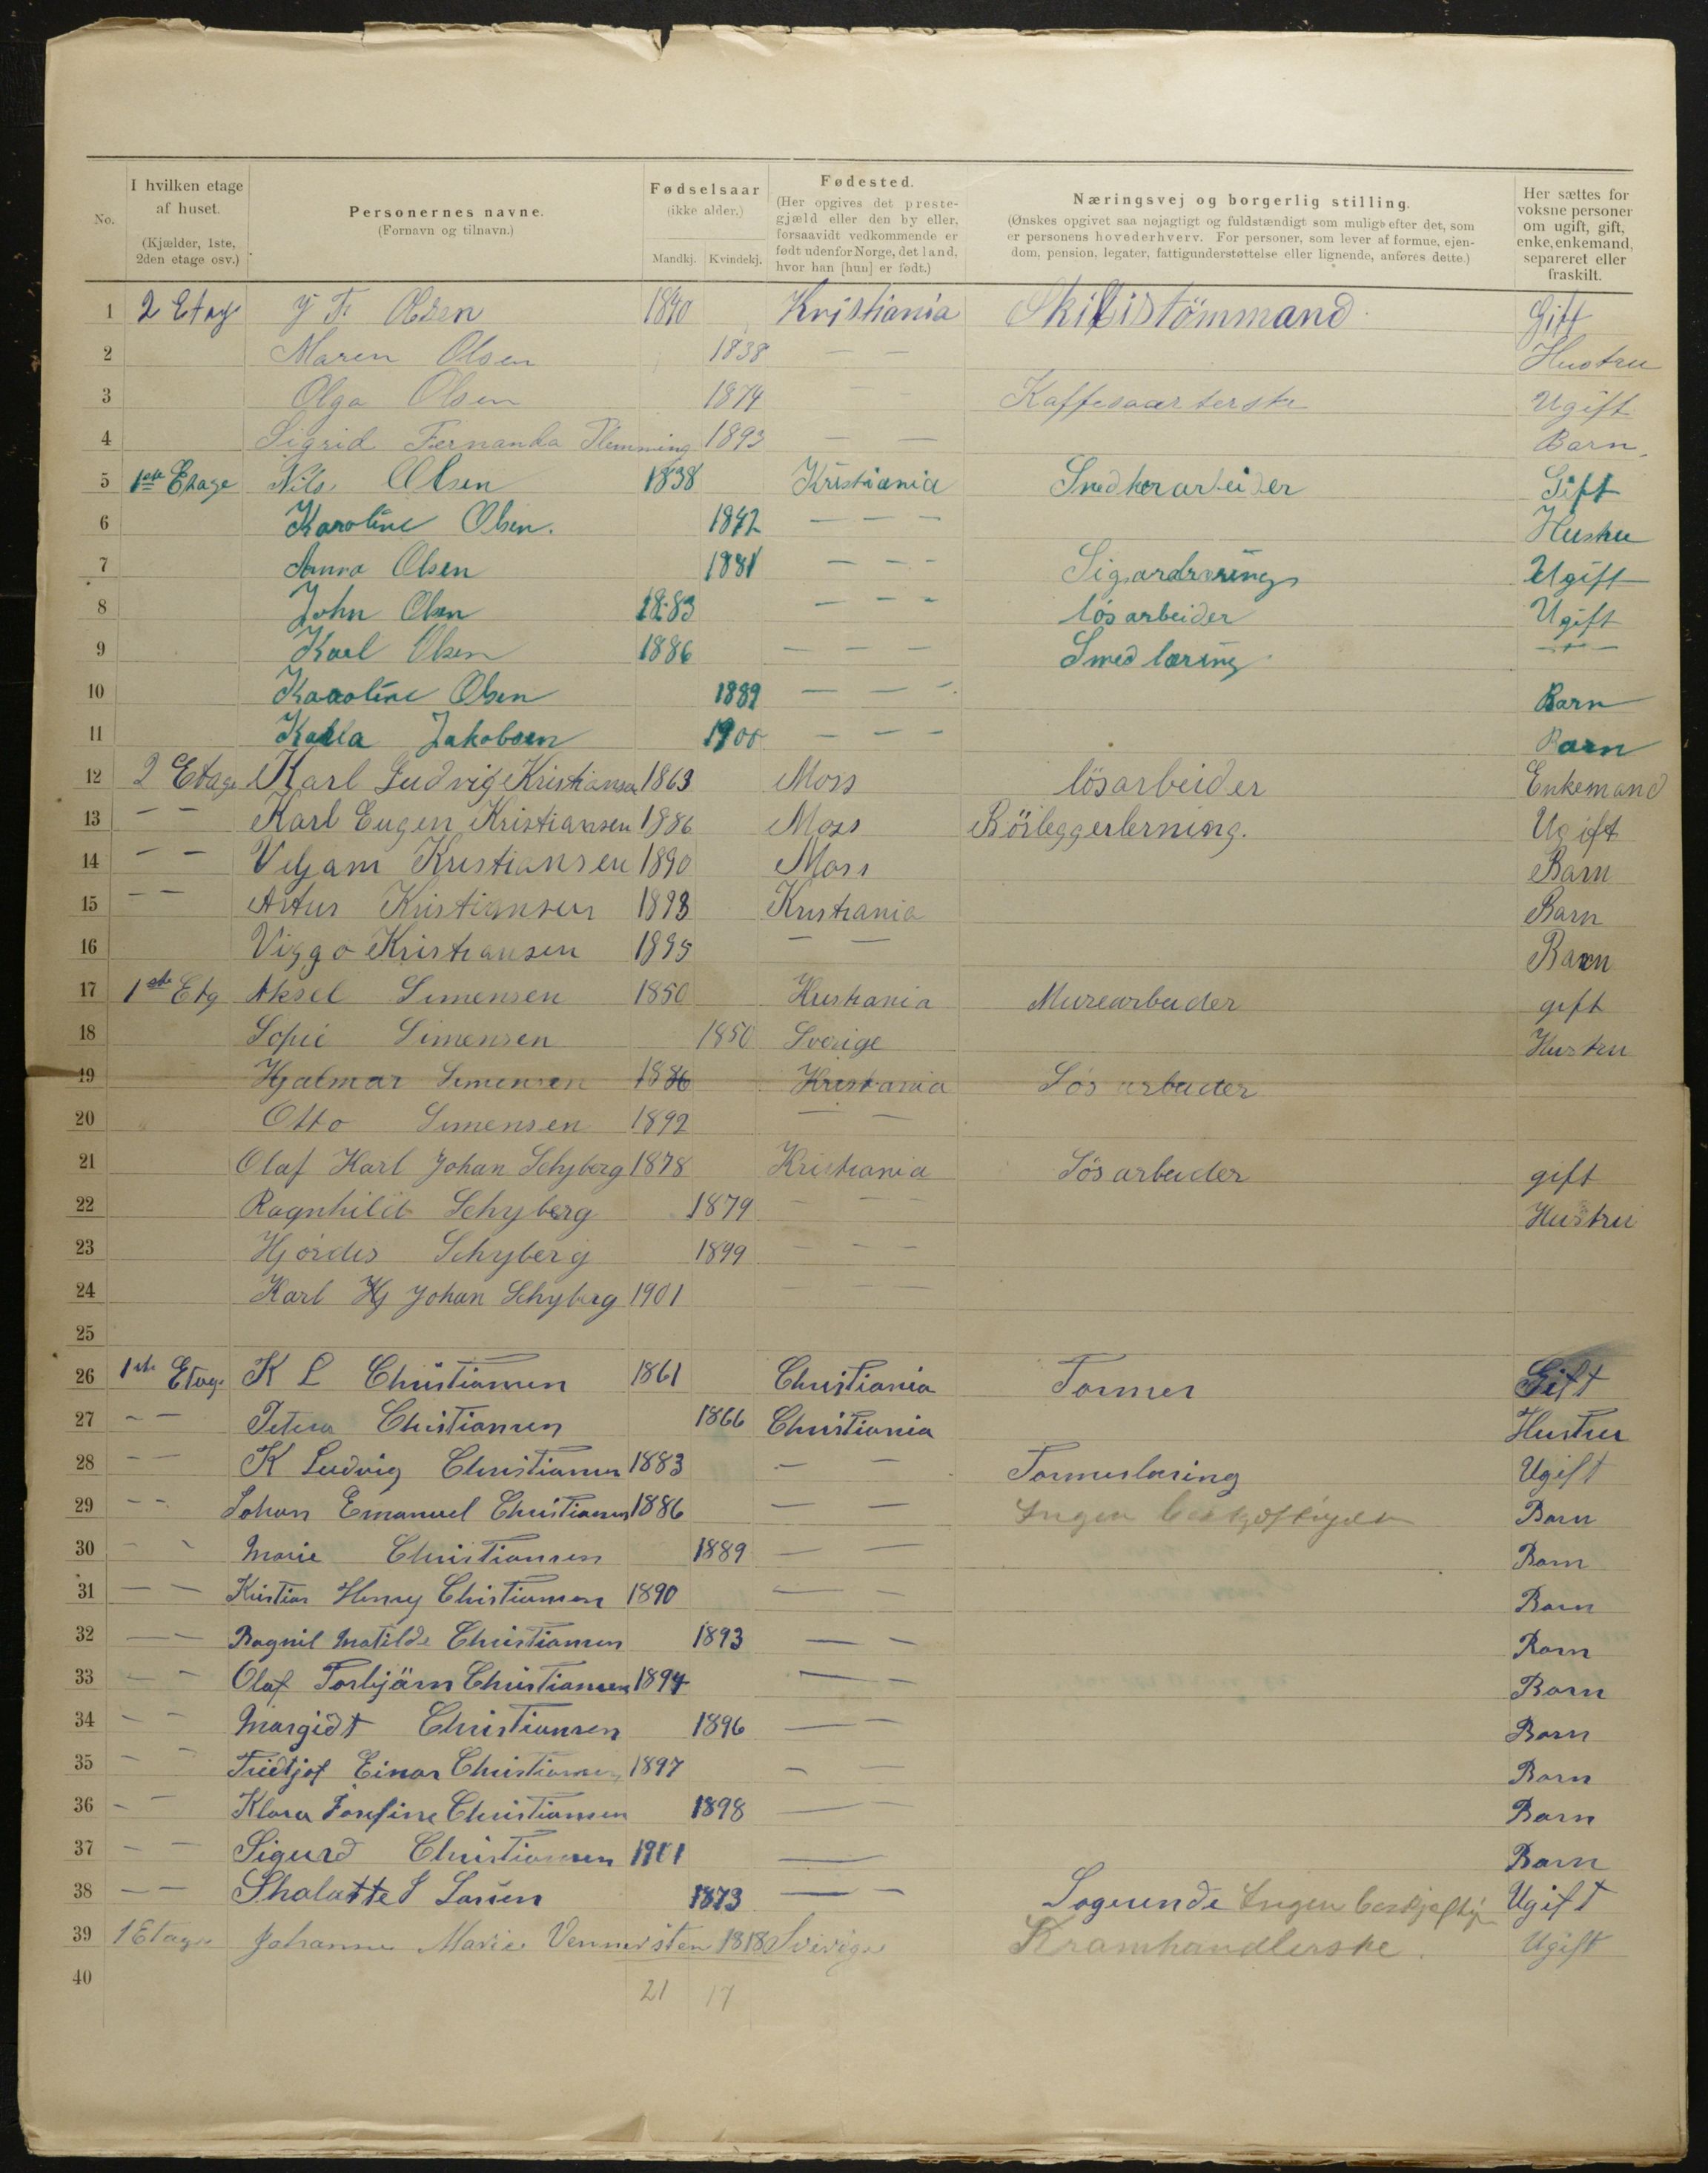 No.
I hvilken etage af huset.
(Kjælder, 1ste, 2den etage osv.)
Personernes navne.
(Fornavn og tilnavn.)
Fødselsaar
(ikke alder.)
Mandkj. Kvindekj.
Fødested.
(Her opgives det prestegjæld eller den by eller, forsaavidt vedkommende er født udenfor Norge, det land, hvor han [hun] er født.)
Næringsvej og borgerlig stilling.
(Ønskes opgivet saa nøjagtigt og fuldstændigt som muligt efter det, som er personens hovederhverv. For personer, som lever af formue, ejendom, pension, legater, fattigunderstøttelse eller lignende, anføres dette.)
Her sættes for voksne personer om ugift, gift, enke, enkemand, separeret eller fraskilt.
1 2 Etage J F. Olsen 1840 Kristiania Skibistömmand Gift
2 Maren Olsen 1838 — — Hustru
3 Olga Olsen 1874 — Kaffesaarterske Ugift
4 Sigrid Fernanda Flemming 1893 — — Barn.
5 1ste Etage Nils Olsen 1838 Kristiania Snedkerarbeider Gift
6 Karoline Olsen. 1842 — — — Hustru
7 Anna Olsen 1881 — — — Ugift
8 John Olsen 1883 — — — lösarbeider Ugift
9 Karl Olsen 1886 — — — Smedlæring — — —
10 Karoline Olsen 1889 — — — Barn
11 Karla Jakobsen 1900 — — — Barn
12 2 Etage Karl Ludvig Kristiansen 1863 Moss lösarbeider Enkemand
13 — — Karl Eugen Kristiansen 1886 Moss Rörleggerlerning. Ugift
14 — — Veljam Kristiansen 1890 Moss Barn
15 — — Artur Kristiansen 1893 Kristiania Barn
16 Viggo Kristiansen 1895 — — Barn
17 1ste Etg Aksel Simensen 1850 Kristiania Murearbeider gift
18 Sofie Simensen 1850 Sverige Hustru
19 Hjalmar Simensen 1886 Kristiania Lös arbeider
20 Otto Simensen 1892 — —
21 Olaf Karl Johan Schyberg 1878 Kristiania Lös arbeider gift
22 Ragnhild Schyberg 1879 — — — Hustru
23 Hjördis Schyberg 1899 — — —
24 Karl Hj Johan Schyberg 1901 — —
25
26 1ste Etage K L Christiansen 1861 Christiania Former Gift
27 — — Petera Christiansen 1866 Christiania Hustru
28 — — K Ludvig Christiansen 1883 — — Formerlæring Ugift
29 — — Johan Emanuel Christiansen 1886 — — Ingen beskjæftigelse Barn
30 — — Marie Christiansen 1889 — — Barn
31 — — Kristian Henry Christiansen 1890 — — Barn
32 — — Ragnil Matilde Christiansen 1893 — — Barn
33 — — Olaf Torbjärn Christiansen 1894 — — Barn
34 — — Margidt Christiansen 1896 — — Barn
35 — — Fridtjof Einar Christiansen 1897 — — Barn
36 — — Klara Josefine Christiansen 1898 — — Barn
37 — — Sigurd Christiansen 1901 — Barn
38 — — Shalatte S Larsen 1873 — — Logerende Ingen beskjæftig Ugift
39 1 Etage Johanne Marie 1818 Sverige Kramhandlerske. Ugift
40
21 17